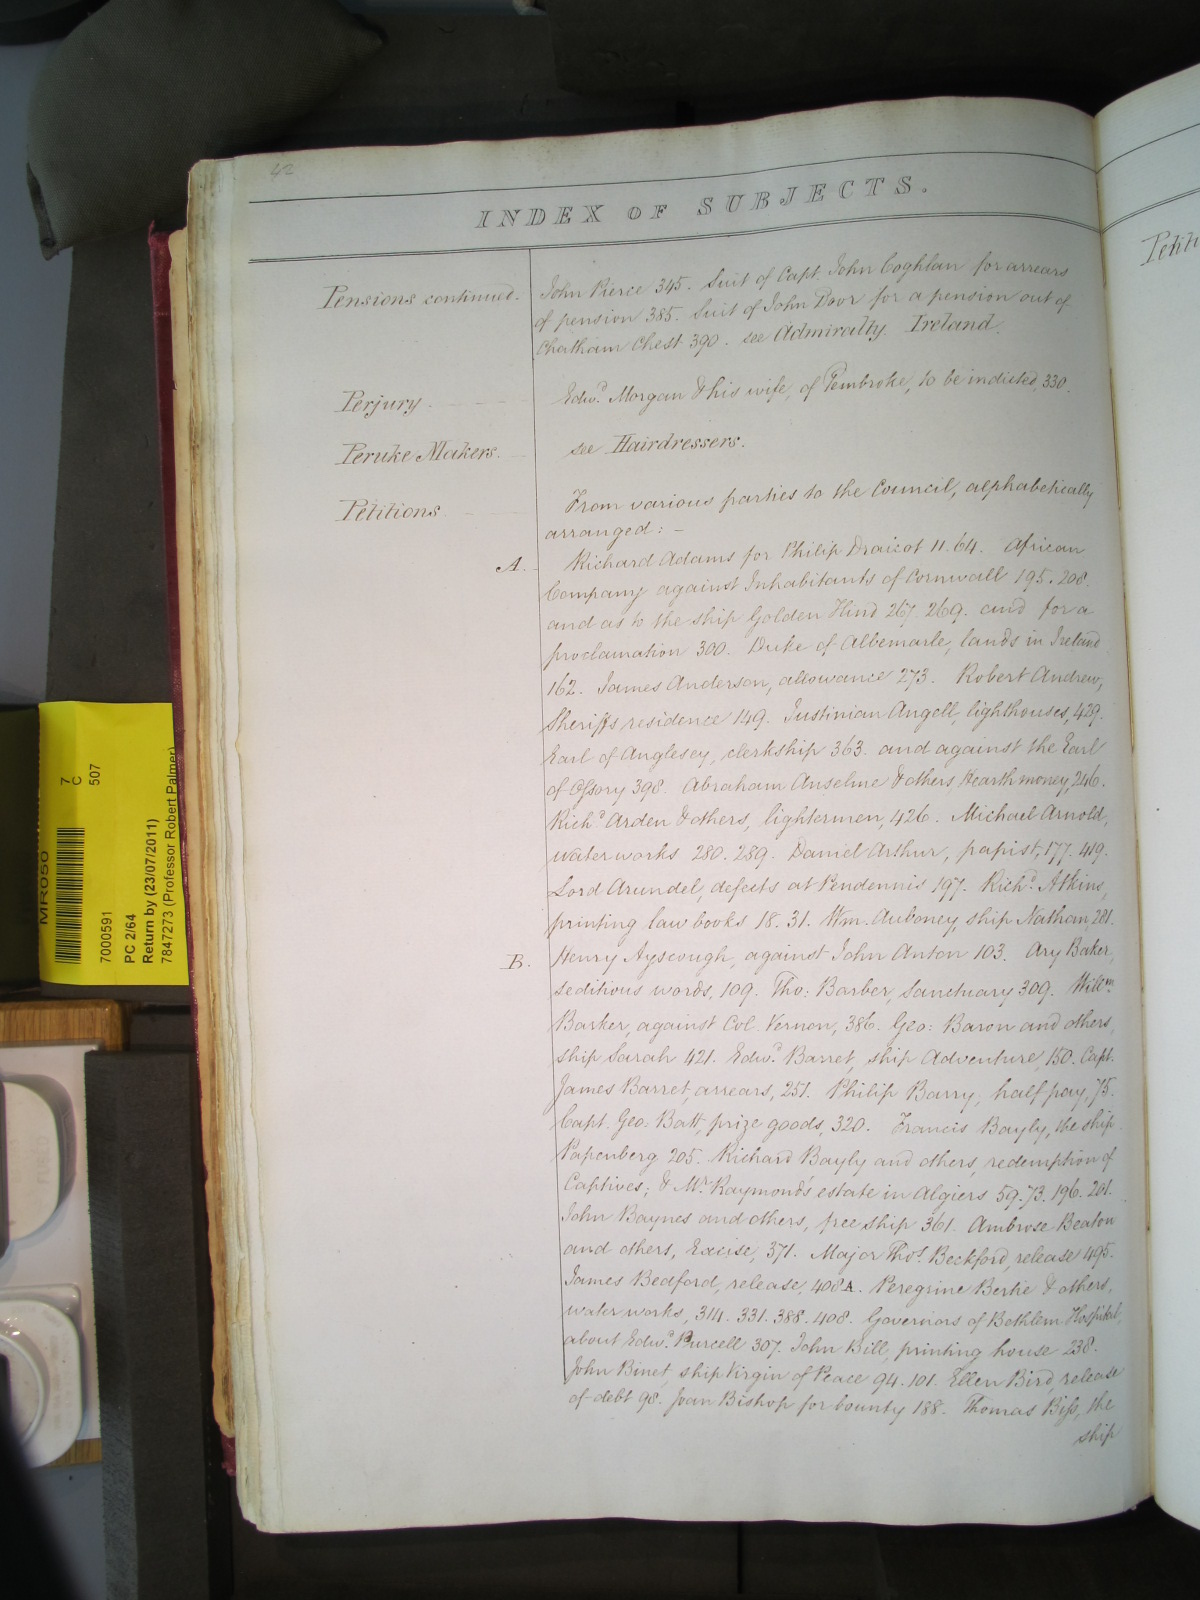 42
INDEX OF SUBJECTS.
Pensions continued.
John Pierce 345. Suit of Capt. John Coghlan for arrears
of pension 385. Suit of John Door for a pension out of
Chatham Chest 390. see Admiralty. Ireland.
Perjury.
Edwd. Morgan & his wife, of Pembroke, to be indicted, 330.
Peruke Makers.
see Hairdressers.
Petitions
From various parties to the Council, alphabetically
arranged: —
A.
Richard Adams for Philip Draicot 11. 64. African
Company against Inhabitants of Cornwall 195. 208.
and as to the ship Golden Hind 267. 269. and for a
proclamation 300. Duke of Albemarle, lands in Ireland
162. James Anderson, allowance 273. Robert Andrew,
Sheriffs residence 149. Justinian Angell, lighthouses, 429.
Earl of Anglesey, clerkship 363. and against the Earl
of Ossory 398. Abraham Anselme & others, Hearth money, 246.
Richd. Arden & others, lightermen, 426. Michael Arnold,
waterworks 280. 289. Daniel Arthur, papist, 177. 419.
Lord Arundel, defects at Pendennis 197. Richd. Atkins,
printing law books 18. 31. Wm. Auboney, ship Nathan, 281.
Henry Ayscough, against John Anton 103.
B.
Ary Baker,
seditious words, 109. Tho: Barber, Sanctuary 309. Willm.
Barker, against Col. Vernon, 386. Geo: Baron and others,
ship Sarah 421. Edwd. Barret, ship Adventure, 150. Capt.
James Barret, arrears, 251. Philip Barry, half pay, 75.
Capt. Geo: Batt, prize goods, 320. Francis Bayly, the ship
Papenberg 205. Richard Bayly and others, redemption of
Captives; & Mr. Raymond's estate in Algiers 59. 73. 196. 201.
John Baynes and others, free ship 361. Ambrose Beaton
and others, Excise, 371. Major Thos. Beckford, release 495.
James Bedford, release, 408A. Peregrine Bertie & others,
water works, 314. 331. 388. 408. Governors of Bethlem Hospital,
about Edwd. Purcell 307. John Bill, printing house 238.
John Binet, ship Virgin of Peace 94. 101. Ellen Bird, release
of debt 98. Joan Bishop for bounty 188. Thomas Biss, the
ship
MR050
7
C
507
7000591
PC 2/64
Return by (23/07/2011)
7847273 (Professor Robert Palmer)